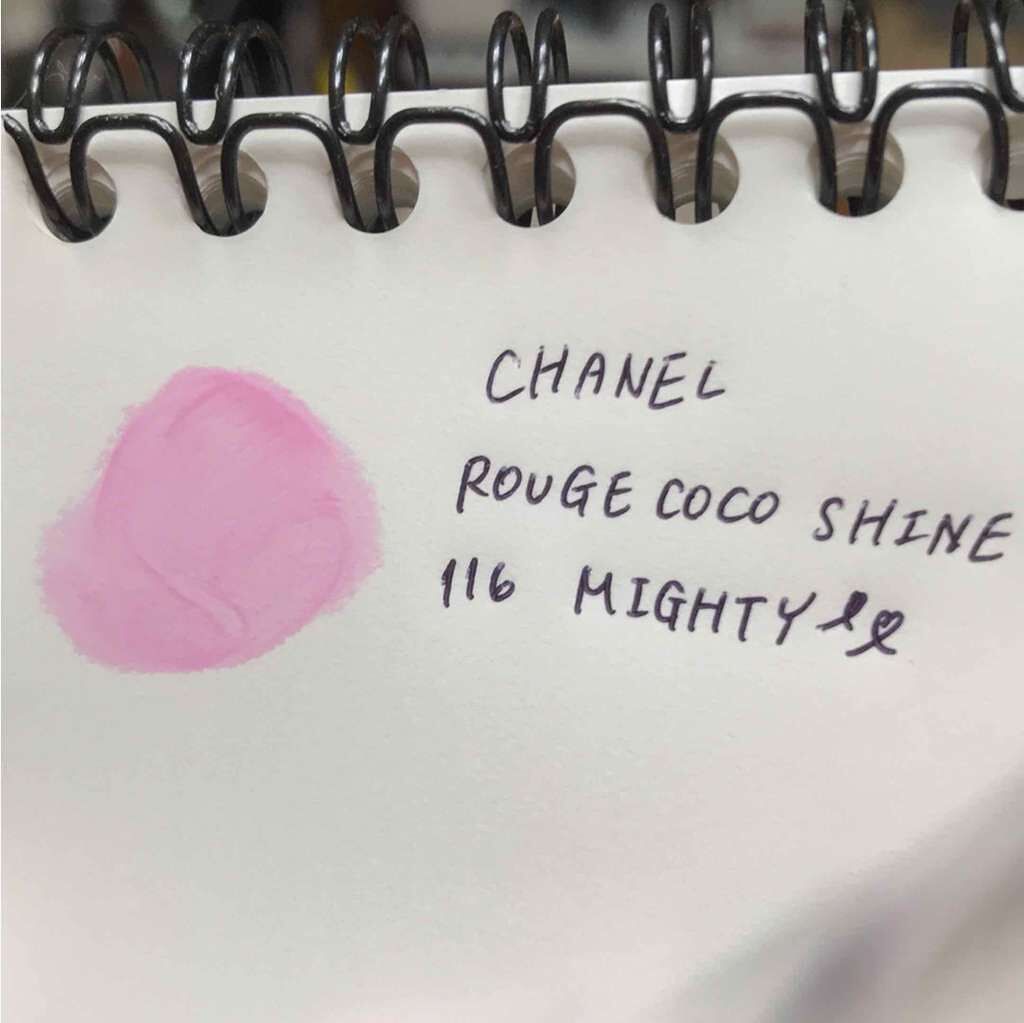 CHANEL
ROUGE COCO SHINE
116 MIGHTY